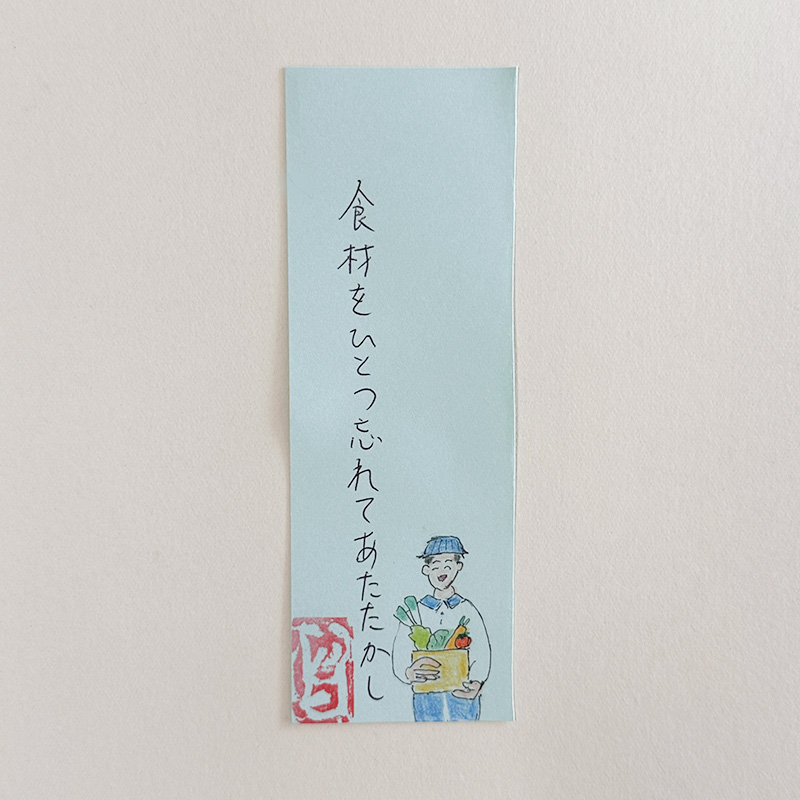 食材をひとつ忘れてあたたかし